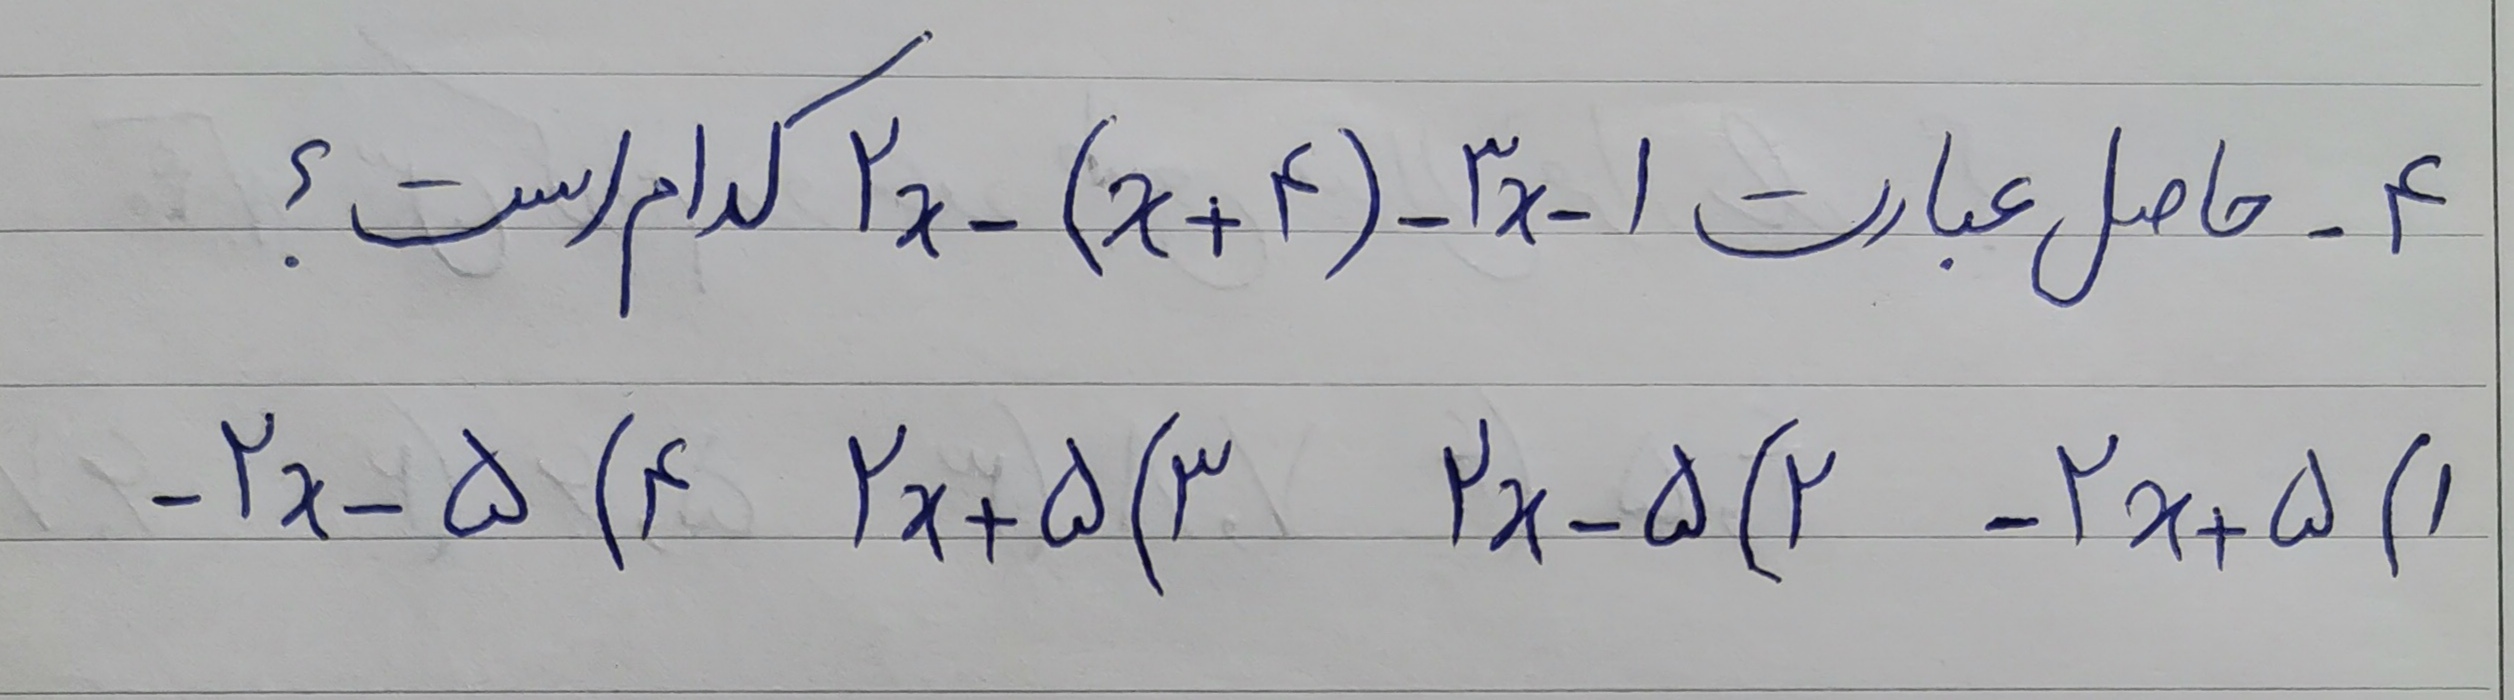 ۴ - حاصل عبارت ۲x - (x + ۴) - ۳x - ۱ کدام است ؟
۱) -۲x + ۵ ۲) ۲x - ۵ ۳) ۲x + ۵ ۴) -۲x - ۵